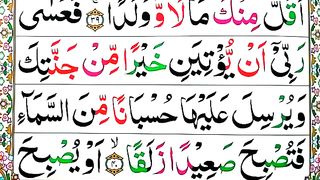 اَقَلَّ مِنْكَ مَالًا وَّوَلَدًا ۝۳۹ فَعَسٰی
رَبِّیْۤ اَنْ یُّؤْتِیَنِ خَیْرًا مِّنْ جَنَّتِكَ
وَیُرْسِلَ عَلَیْهَا حُسْبَانًا مِّنَ السَّمَآءِ
فَتُصْبِحَ صَعِیْدًا زَلَقًا ۝۴۰ۙ اَوْ یُصْبِحَ